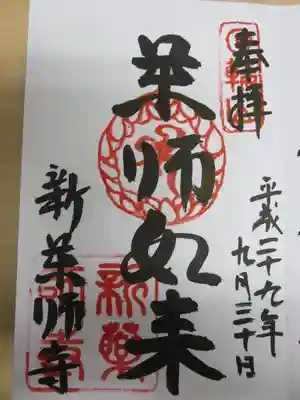 奉拝
平成二十九年
九月三十日
薬師如来
新薬師寺